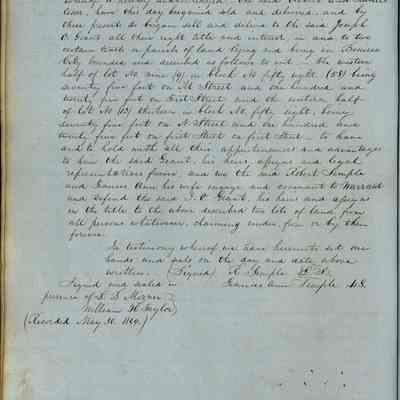 tion, have this day bargained sold and delivered, and by
these presents do bargain sell and deliver to the said Joseph
C. Grant all their right title and interest in and to two
certain lots or parcels of land lying and being in Benicia
City bounded and described as follows to wit. the western
half of lot No. nine (9) in block No. fifty eight, (58) being
seventy five feet on M Street and one hundred and
twenty five feet on First Street and the western half
of lot No (13) thirteen in block No. fifty eight, being
seventy five feet on N Street and one hundred and
twenty five feet on first Street on first Street to have
and to hold with all their appurtenances and advantages
to him the said Grant, his heirs, assigns and legal
representatives forever, and we the said Robert Semple
and Frances Ann his wife engage and covenant to Warrant
and defend the said J. C. Grant, his heirs and assigns
in the title to the above described two lots of land, from
all persons whatsoever, claiming under, for or by them
forever.
In testimony whereof we have hereunto set our
hands and seals on the day and date above
written. (Signed) R. Semple L.S.
Signed and sealed in Frances Ann Semple L.S.
presence of L. B. Mizner
William H. Taylor
(Recorded May 30. 1849.)